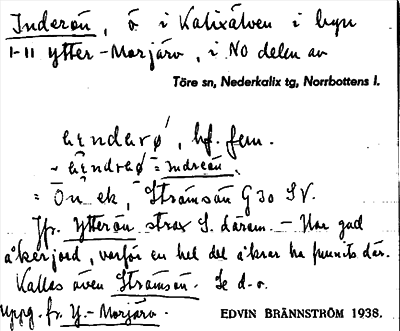 Inderön, ö i Kalixälven i byn
1-11 Ytter-Morjärv, i NO delen av
Töre sn, Nederkalix tg, Norrbottens l.
bf. fem.
= Indreön
= Ön ek, Strömsön G 30 SV.
Jfr. Ytterön strax S. därom. - Har god
åkerjord, varför en hel del åkrar ha funnits där.
Kallas även Strömsön. Se d.o.
Uppg. fr. Y.-Morjärv.
EDVIN BRÄNNSTRÖM 1938.